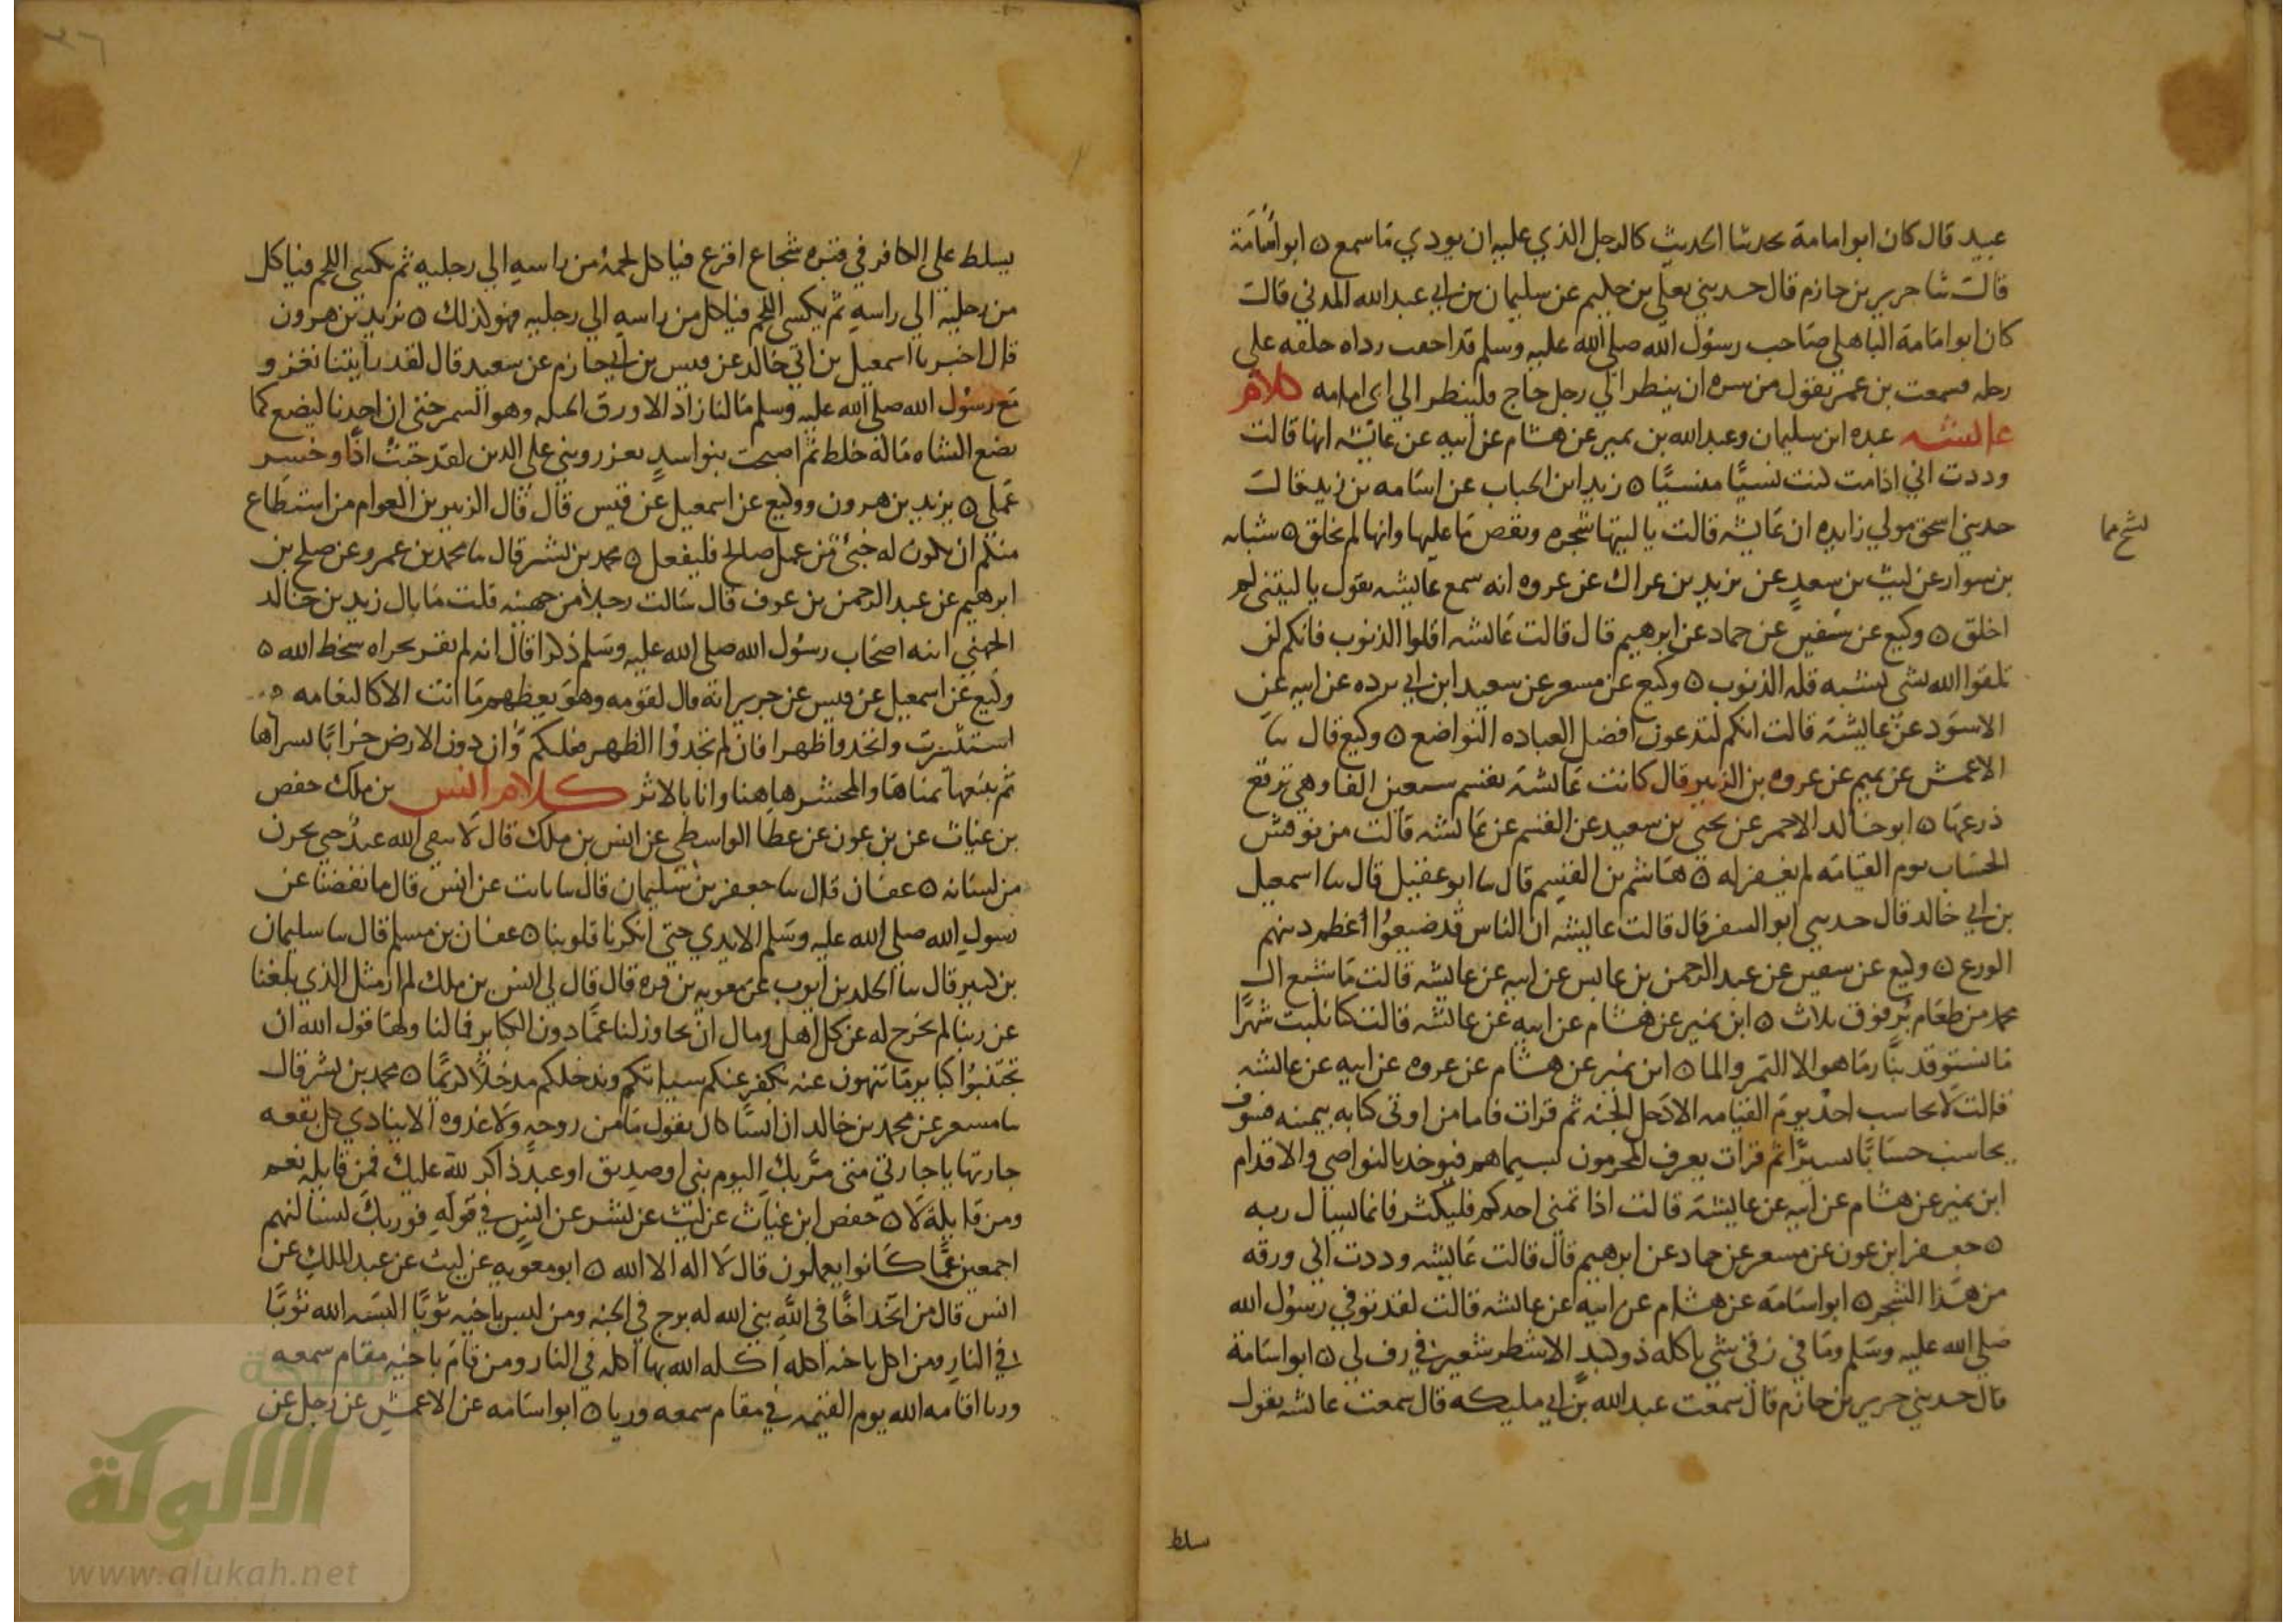 عبيد قال كان ابو امامة يحدثنا الحديث كالرجل الذي عليه ان يودي ما سمع ٥ ابو اسامة
قالت ثنا جرير بن حازم قال حدثني يعلي بن حكيم عن سليمان بن ابي عبد الله المدني قالت
كان ابو امامة الباهلي صاحب رسول الله صلي الله عليه وسلم قد احقب رداه خلفه علي
رحله فسمعت بن عمر يقول من سره ان ينظر الي رجل حاج فلينظر الي ابي امامه كلام
عائشه عبده ابن سليمان وعبد الله بن نمير عن هشام عن ابيه عن عائشه انها قالت
وددت اني اذا مت كنت نسيًا منسيًا ٥ زيد ابن الحباب عن اسامه بن زيد قالت
حدثني اسحق مولي زايده ان عايشه قالت يا ليتها شجره وبعض ما عليها وانها لم تخلق ٥ شبابه
بن سوار عن ليث بن سعد عن يزيد بن عراك عن عروه انه سمع عايشه تقول يا ليتني لم
اخلق ٥ وكيع عن سفين عن حماد عن ابرهيم قال قالت عايشه اقلوا الذنوب فانكم لن
تلقوا الله بشي يشبه قله الذنوب ٥ وكيع عن مسعر عن سعيد ابن ابي برده عن ابيه عن
الاسود عن عايشه قالت انكم لتدعون افضل العباده التواضع ٥ وكيع قال ثنا
الاعمش عن تميم عن عروه بن الزبير قال كانت عايشه تقسم سبعين الفا وهي ترقع
درعها ٥ ابو خالد الاحمر عن يحيي بن سعيد عن القسم عن عايشه قالت من نوقش
الحساب يوم القيامه لم يغفر له ٥ هاشم بن القسيم قال ثنا ابو عقيل قال ثنا اسمعيل
بن ابي خالد قال حدثني ابو السفر قال قالت عايشه ان الناس قد ضيعوا اعظم دينهم
الورع ٥ وكيع عن سفين عن عبد الرحمن بن عابس عن ابيه عن عايشه قالت ما شبع ال
محمد من طعام بر فوق ثلاث ٥ ابن نمير عن هشام عن ابيه عن عايشه قالت كنا نلبث شهرًا
ما نستوقد بنار ما هو الا التمر والما ٥ ابن نمير عن هشام عن عروه عن ابيه عن عايشه
قالت لا يحاسب احد يوم القيامه الا دخل الجنه ثم قرات فاما من اوتي كتابه بيمينه فسوف
يحاسب حسابًا يسيرًا ثم قرات يعرف المجرمون بسيماهم فيوخذ بالنواصي والاقدام
ابن نمير عن هشام عن ابيه عن عايشه قالت اذا تمني احدكم فليكثر فانما يسال ربه
٥ جعفر ابن عون عن مسعر عن حماد عن ابرهيم قال قالت عايشه وددت اني ورقه
من هذا الشجر ٥ ابو اسامه عن هشام عن ابيه عن عايشه قالت لقد توفي رسول الله
صلي الله عليه وسلم وما في رفي شي ياكله ذو كبد الا شطر شعير في رف لي ٥ ابو اسامة
قال حدثني جرير بن حازم قال سمعت عبد الله بن ابي مليكه قال سمعت عايشه تقول
سلط
يسلط علي الكافر في قبره شجاع اقرع فياكل لحمه من راسه الي رجليه ثم يكسي اللحم فياكل
من رجليه الي راسه ثم يكسي اللحم فياكل من راسه الي رجليه فهو كذلك ٥ يزيد بن هرون
قال اخبرنا اسمعيل بن ابي خالد عن قيس بن ابي حازم عن سعيد قال لقد رايتنا نغزو
مع رسول الله صلي الله عليه وسلم ما لنا زاد الا ورق الحبله وهو السمر حتي ان احدنا ليضع كما
يضع الشاه ماله خلط ثم اصبحت بنو اسد يعزروني علي الدين لقد خبت اذًا وخسر
عملي ٥ يزيد بن هرون ووكيع عن اسمعيل عن قيس قال قال الزبير بن العوام من استطاع
منكم ان يكون له خبئ من عمل صالح فليفعل ٥ محمد بن بشر قال ثنا محمد بن عمرو عن صلح بن
ابرهيم عن عبد الرحمن بن عوف قال سالت رجلاً من جهينه قلت ما بال زيد بن خالد
الجهني انبه اصحاب رسول الله صلي الله عليه وسلم ذكرا قال انه لم يقر بحراه سخط الله ٥
وكيع عن اسمعيل عن قيس عن جرير انه قال لقومه وهو يعظهم ما انت الا كالنعامه
استترت واتخدوا ظهرا فان لم تخدوا الظهر فلكم وان دون الارض خرابًا يسراها
ثم يتبعها يمناها والمحشر هاهنا وانا بالاثر كلام انس بن ملك حفص
بن غياث عن بن عون عن عطا الواسطي عن انس بن ملك قال لا يتقي الله عبد حتي يخزن
من لسانه ٥ عفان قال ثنا جعفر بن سليمان قال ثنا ثابت عن انس قال ما نفضنا عن
رسول الله صلي الله عليه وسلم الايدي حتي انكرنا قلوبنا ٥ عفان بن مسلم قال ثنا سليمان
بن كثير قال ثنا الجلد بن ايوب عن معويه بن قره قال قال لي انس بن ملك لم ار مثل الذي بلغنا
عن ربنا لم نخرج له عن كل اهل ومال ان تجاوز لنا عما دون الكباير فمالنا ولها قول الله ان
تجتنبوا كبائر ما تنهون عنه نكفر عنكم سيئاتكم وندخلكم مدخلاً كريمًا ٥ محمد بن بشر قال
ثنا مسعر عن محمد بن خالد ان انسًا كان يقول ما من روحه ولا غدوه الا ينادي كل بقعه
جارتها يا جارتي متي مر بك اليوم نبي او صديق او عبد ذاكر لله عليك فمن قايله نعم
ومن قايلة لا ٥ حفص ابن غياث عن ليث عن بشر عن انس في قوله فوربك لنسالنهم
اجمعين عما كانوا يعملون قال لا اله الا الله ٥ ابو معويه عن ليث عن عبد الملك عن
انس قال من اتخذ اخًا في الله بني الله له برج في الجنه ومن لبس باخيه ثوبًا البسه الله ثوبًا
في النار ومن اكل باخيه اكله اكله الله بها اكله في النار ومن قام باخيه مقام سمعه
وريا اقامه الله يوم القيمه في مقام سمعه وريا ٥ ابو اسامه عن الاعمش عن رجل عن
شبكة
الألوكة
www.alukah.net